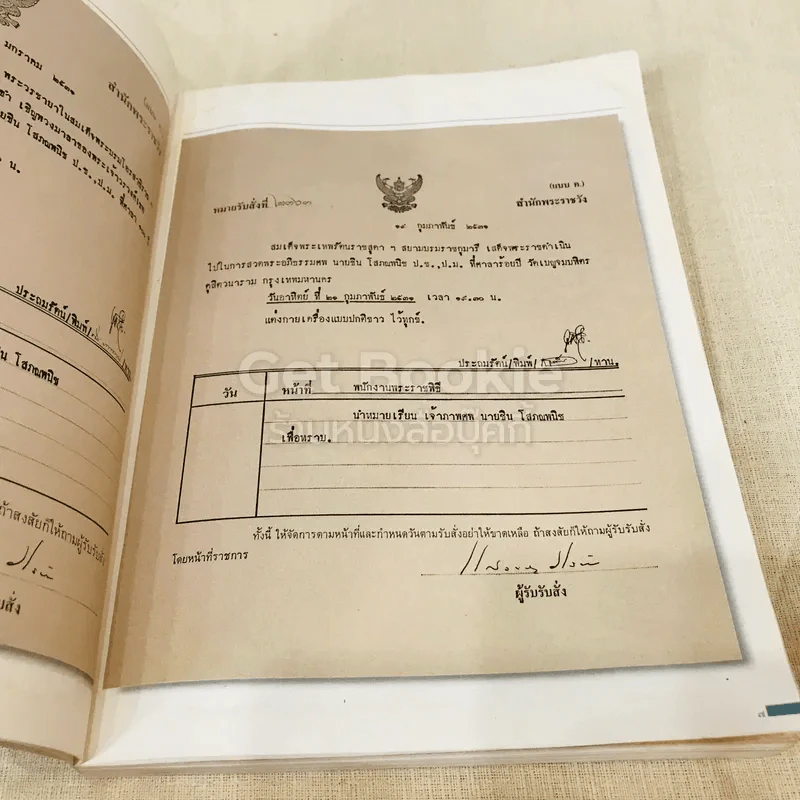 มกราคม ๒๕๓๑
สำนักพระราชวัง
น.
ประถมรัตน์/พิมพ์/
โสภณพนิช
ถ้าสงสัยก็ให้ถามผู้รับรับสั่ง
(แบบ ค.)
หมายรับสั่งที่ ๒๗๖๓
สำนักพระราชวัง
๑๙ กุมภาพันธ์ ๒๕๓๑
สมเด็จพระเทพรัตนราชสุดา ฯ สยามบรมราชกุมารี เสด็จพระราชดำเนิน
ไปในการสวดพระอภิธรรมศพ นายชิน โสภณพนิช ป.ช.,ป.ม. ที่ศาลาร้อยปี วัดเบญจมบพิตร
ดุสิตวนาราม กรุงเทพมหานคร
วันอาทิตย์ ที่ ๒๑ กุมภาพันธ์ ๒๕๓๑ เวลา ๑๙.๓๐ น.
แต่งกายเครื่องแบบปกติขาว ไว้ทุกข์.
ประถมรัตน์/พิมพ์/ /ทาน.
วัน
หน้าที่ พนักงานพระราชพิธี
นำหมายเรียน เจ้าภาพศพ นายชิน โสภณพนิช
เพื่อทราบ.
Get Bookie
ร้านหนังสือบุคกี้
ทั้งนี้ ให้จัดการตามหน้าที่และกำหนดวันตามรับสั่งอย่าให้ขาดเหลือ ถ้าสงสัยก็ให้ถามผู้รับรับสั่ง
โดยหน้าที่ราชการ
ผู้รับรับสั่ง
๗